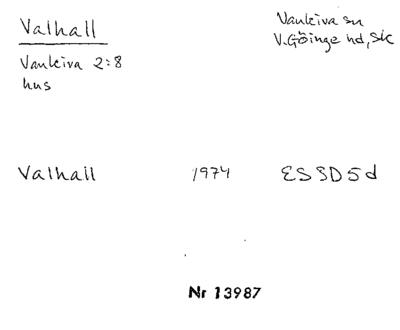 Valhall
Vankiva sn
V. Göinge hd, Sk
Vankiva 2:8
hus
Valhall 1974 ESSD5d
Nr 13987